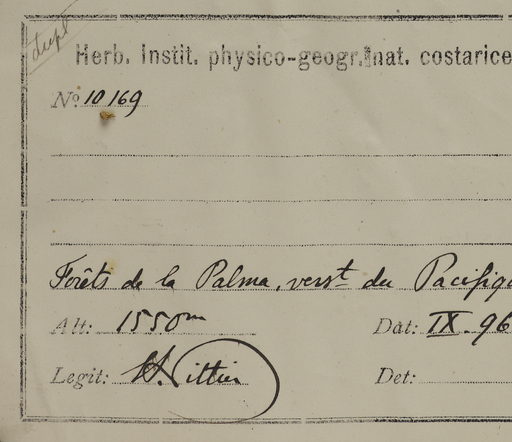 dupl
Herb. Instit. physico-geogr. nat. costarice
No 10169
Forêts de la Palma, verst du Pacifiqu
Alt: 1550m Dat: IX. 96
Legit: H. Pittier Det: